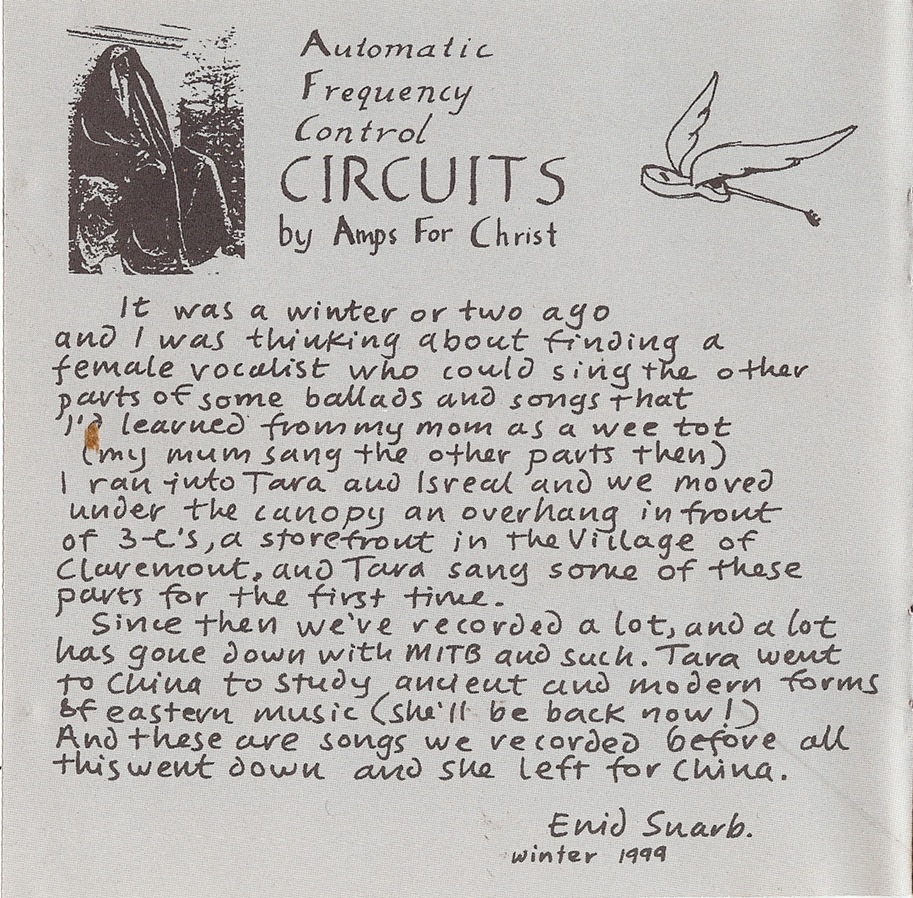 Automatic
Frequency
Control
CIRCUITS
by Amps For Christ
It was a winter or two ago
and I was thinking about finding a
female vocalist who could sing the other
parts of some ballads and songs that
I'd learned from my mom as a wee tot
(my mum sang the other parts then)
I ran into Tara and Isreal and we moved
under the canopy an overhang in front
of 3-C's, a storefront in the Village of
Claremont, and Tara sang some of these
parts for the first time.
Since then we've recorded a lot, and a lot
has gone down with MITB and such. Tara went
to China to study ancient and modern forms
of eastern music (she'll be back now!)
And these are songs we recorded before all
this went down and she left for China.
Enid Snarb.
winter 1999